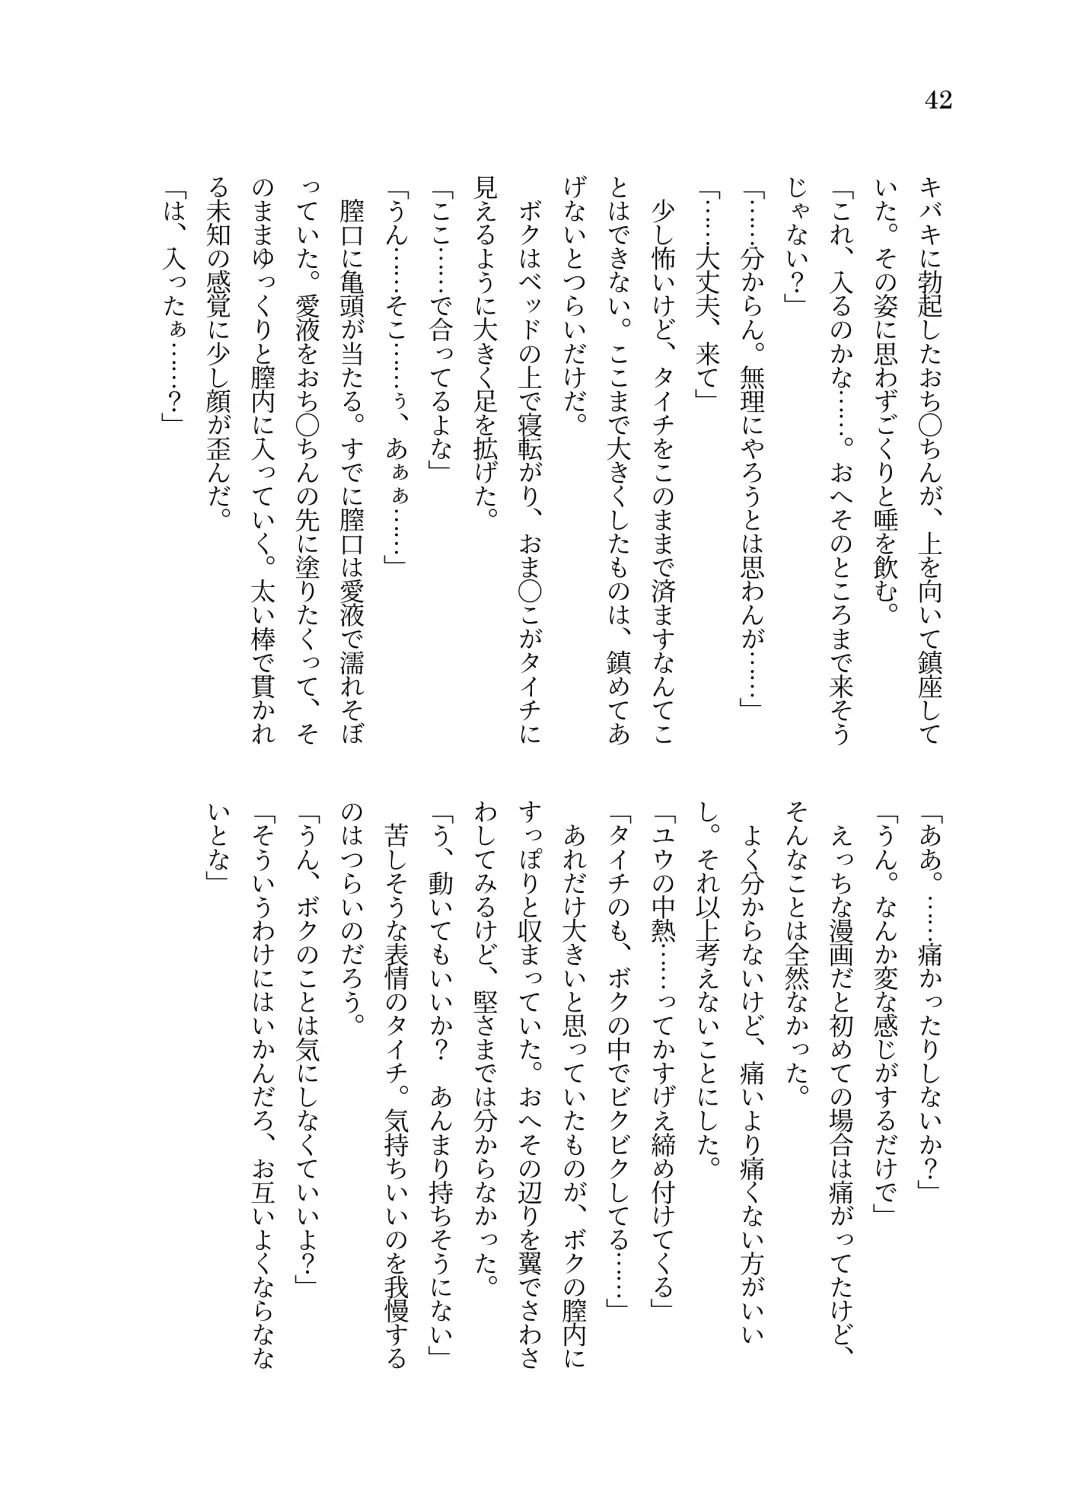 42
キバキに勃起したおち〇ちんが、上を向いて鎮座して
いた。その姿に思わずごくりと唾を飲む。
「これ、入るのかな……。おへそのところまで来そう
じゃない？」
「……分からん。無理にやろうとは思わんが……」
「……大丈夫、来て」
少し怖いけど、タイチをこのままで済ますなんてこ
とはできない。ここまで大きくしたものは、鎮めてあ
げないとつらいだけだ。
ボクはベッドの上で寝転がり、おま〇こがタイチに
見えるように大きく足を拡げた。
「ここ……で合ってるよな」
「うん……そこ……ぅ、あぁぁ……」
膣口に亀頭が当たる。すでに膣口は愛液で濡れそぼ
っていた。愛液をおち〇ちんの先に塗りたくって、そ
のままゆっくりと膣内に入っていく。太い棒で貫かれ
る未知の感覚に少し顔が歪んだ。
「は、入ったぁ……？」
「ああ。……痛かったりしないか？」
「うん。なんか変な感じがするだけで」
えっちな漫画だと初めての場合は痛がってたけど、
そんなことは全然なかった。
よく分からないけど、痛いより痛くない方がいい
し。それ以上考えないことにした。
「ユウの中熱……ってかすげえ締め付けてくる」
「タイチのも、ボクの中でビクビクしてる……」
あれだけ大きいと思っていたものが、ボクの膣内に
すっぽりと収まっていた。おへその辺りを翼でさわさ
わしてみるけど、堅さまでは分からなかった。
「う、動いてもいいか？　あんまり持ちそうにない」
苦しそうな表情のタイチ。気持ちいいのを我慢する
のはつらいのだろう。
「うん、ボクのことは気にしなくていいよ？」
「そういうわけにはいかんだろ、お互いよくならなな
いとな」